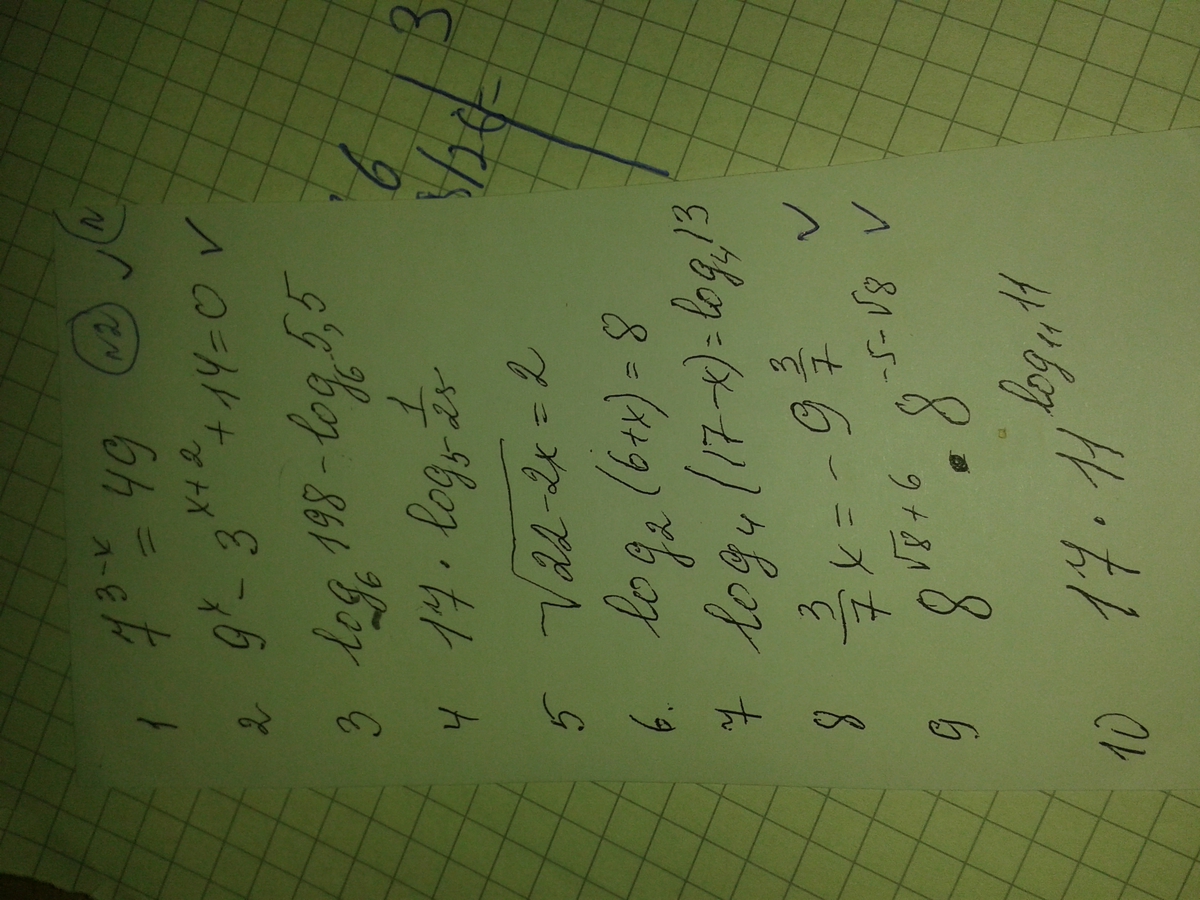 №2 N
1 7^{3-x} = 49
2 9^x - 3^{x+2} + 14 = 0
3 log_6 198 - log_6 5,5
4 17 · log_5 \frac{1}{25}
5 \sqrt{22-2x} = 2
6. log_2 (6+x) = 8
7 log_4 (17-x) = log_4 13
8 \frac{3}{7} x = - 9 \frac{3}{7}
9 8^{\sqrt{8}+6} · 8^{-5-\sqrt{8}}
10 17 · 11^{log_{11} 11}
6
3